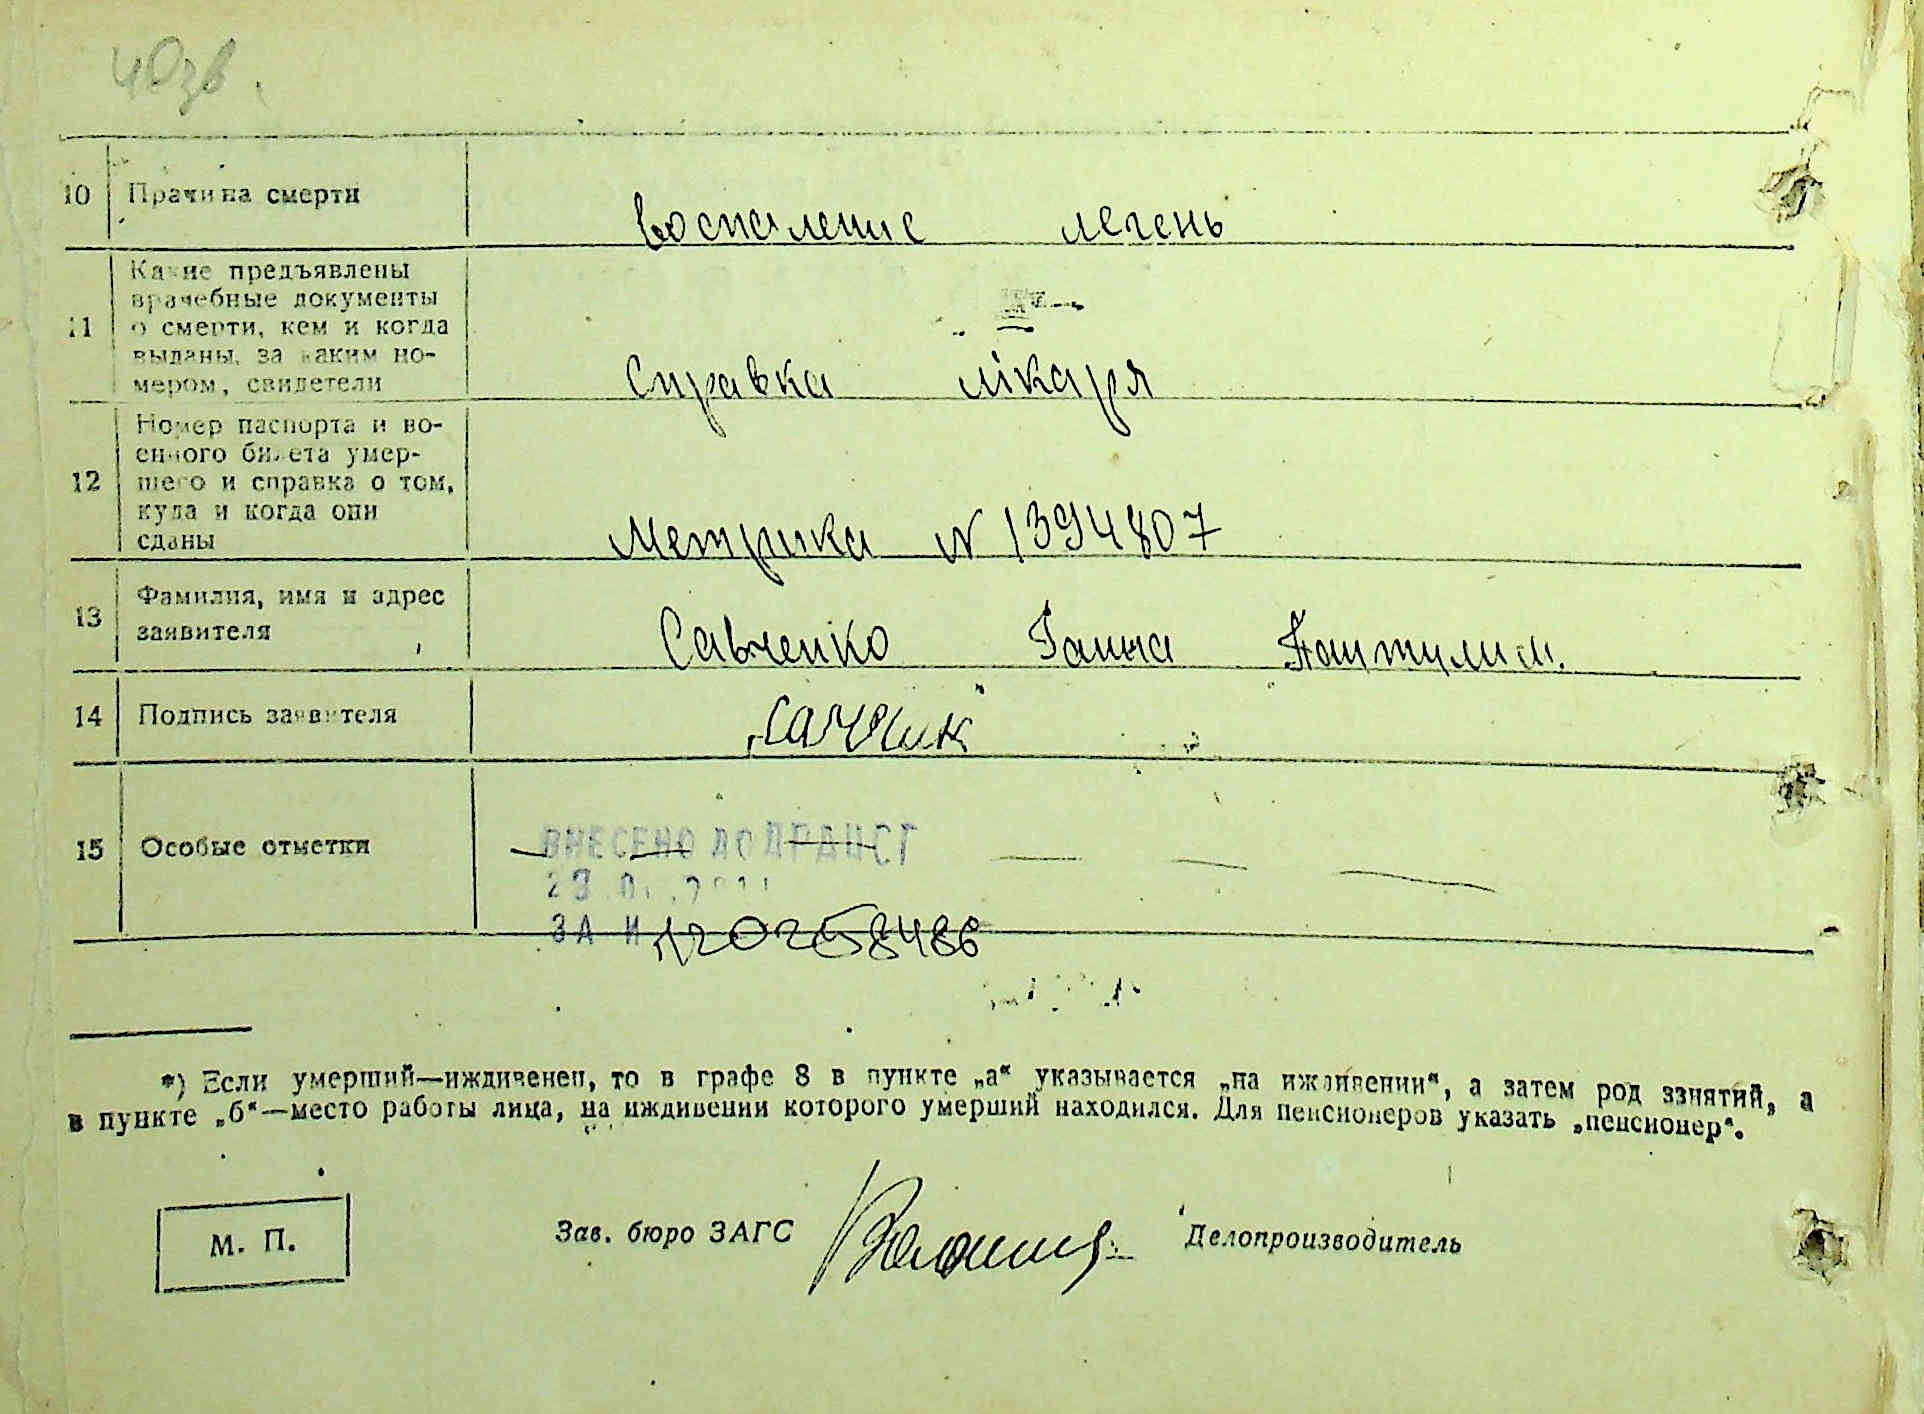 40зв.
10 Причина смерти
воспаление легень
11 Какие предъявлены
врачебные документы
о смерти, кем и когда
выданы, за каким но-
мером, свидетели
Справка лікаря
12 Номер паспорта и во-
енного билета умер-
шего и справка о том,
куда и когда они
сданы
Метрика N 1394807
13 Фамилия, имя и адрес
заявителя
Савченко Ганна
14 Подпись заявителя
15 Особые отметки
ВНЕСЕНО ДО ДРАЦСГ
ЗА N 120258486
*) Если умерший—иждивенец, то в графе 8 в пункте „а“ указывается „на иждивении“, а затем род занятий, а
в пункте „б“—место работы лица, на иждивении которого умерший находился. Для пенсионеров указать „пенсионер“.
М. П.
Зав. бюро ЗАГС Делопроизводитель